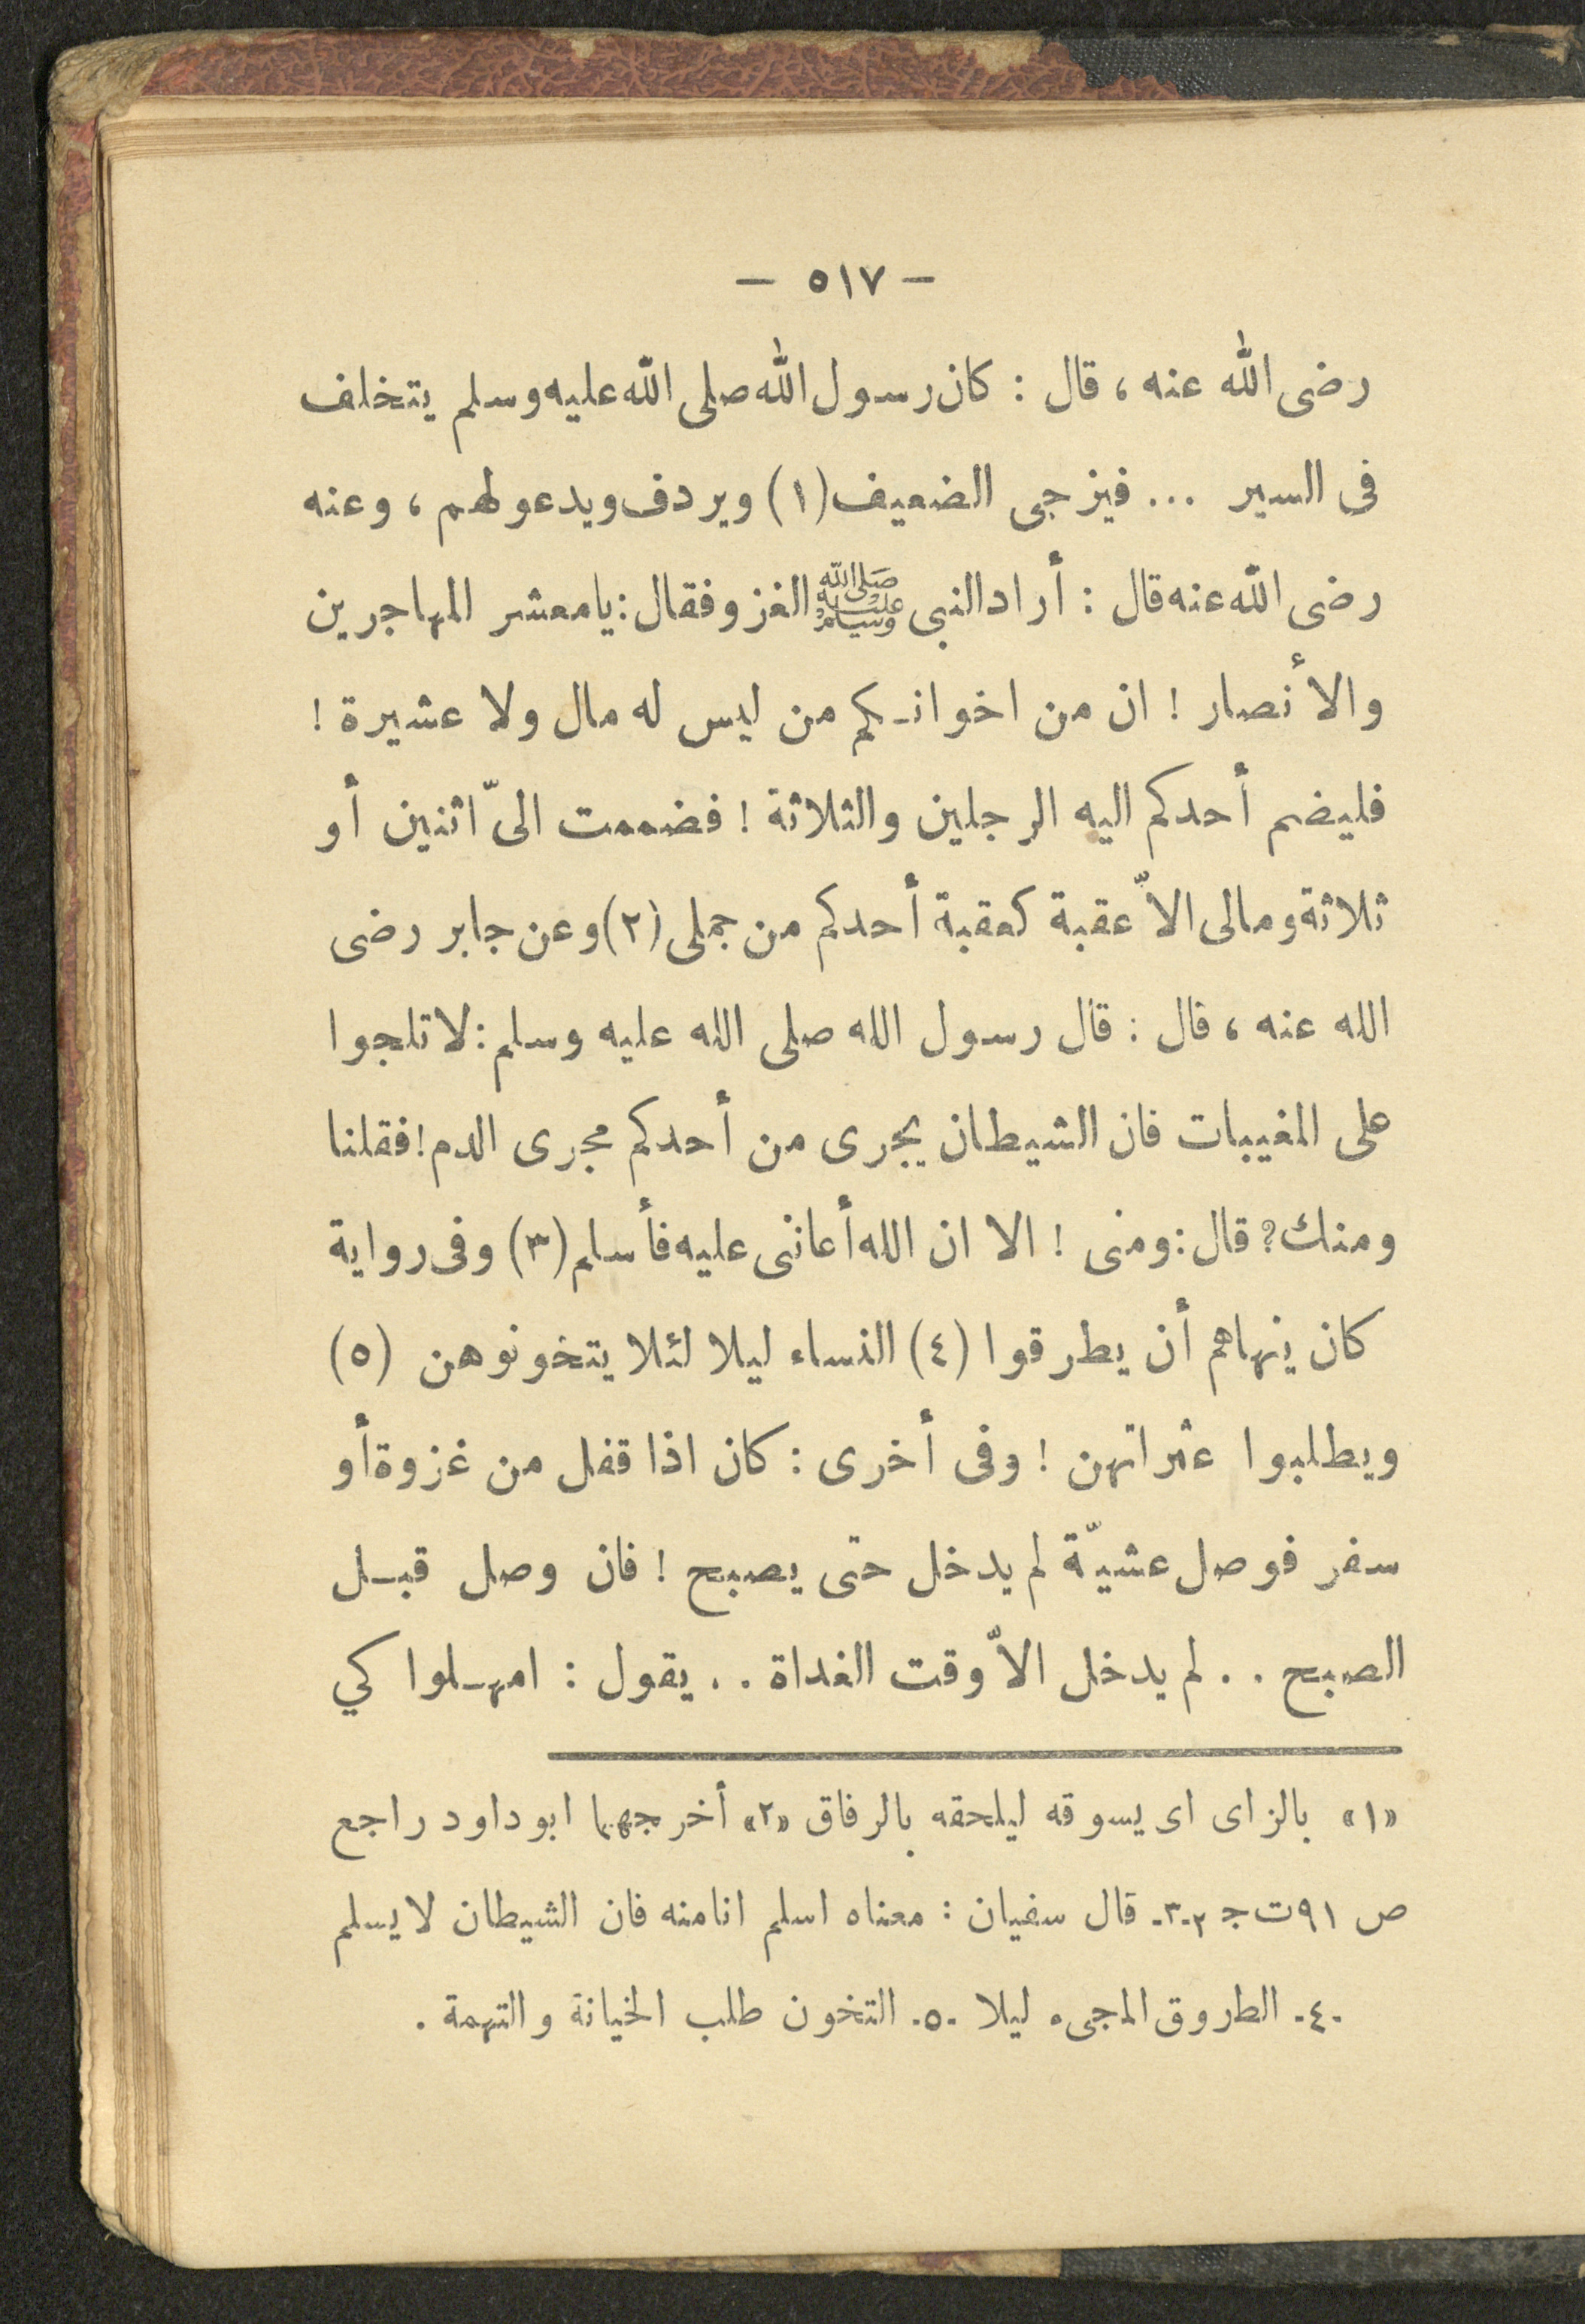 — ٥١٧ —
رضى الله عنه ، قال : كان رسول الله صلى الله عليه وسلم يتخلف
فى السير ... فيزجى الضعيف (١) ويردف ويدعو لهم ، وعنه
رضى الله عنه قال : أراد النبى ﷺ الغزو فقال : يا معشر المهاجرين
والأنصار ! ان من اخوانـكم من ليس له مال ولا عشيرة !
فليضم أحدكم اليه الرجلين والثلاثة ! فضممت الىّ اثنين أو
ثلاثة ومالى الاّ عقبة كعقبة أحدكم من جملى (٢) وعن جابر رضى
الله عنه ، قال : قال رسول الله صلى الله عليه وسلم : لا تلجوا
على المغيبات فان الشيطان يجرى من أحدكم مجرى الدم ! فقلنا
ومنك ؟ قال : ومنى ! الا ان الله أعاننى عليه فأسلم (٣) وفى رواية
كان ينهاهم أن يطرقوا (٤) النساء ليلا لئلا يتخونوهن (٥)
ويطلبوا عثراتهن ! وفى أخرى : كان اذا قفل من غزوة أو
سفر فوصل عشيّة لم يدخل حتى يصبح ! فان وصل قبـل
الصبح . . لم يدخل الاّ وقت الغداة . . يقول : امهـلوا كي
«١» بالزاى اى يسوقه ليلحقه بالرفاق «٢» أخرجهما ابو داود راجع
ص ٩١ ت جـ ٢ -٣- قال سفيان : معناه اسلم انا منه فان الشيطان لا يسلم
-٤- الطروق المجىء ليلا -٥- التخون طلب الخيانة والتهمة .